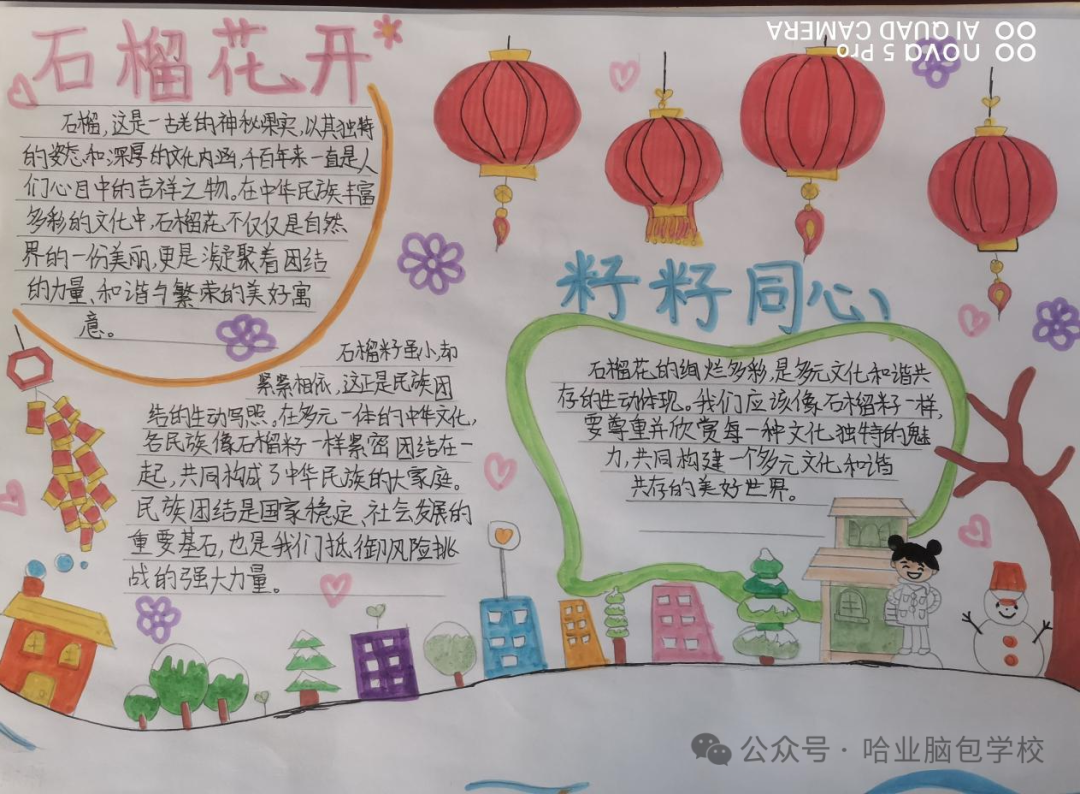 石榴花开
石榴,这是一古老的神秘果实,以其独特
的姿态和深厚的文化内涵,千百年来一直是人
们心目中的吉祥之物。在中华民族丰富
多彩的文化中,石榴花不仅仅是自然
界的一份美丽,更是凝聚着团结
的力量、和谐与繁荣的美好寓
意。
石榴籽虽小,却
紧紧相依,这正是民族团
结的生动写照。在多元一体的中华文化,
各民族像石榴籽一样紧密团结在一
起,共同构成了中华民族的大家庭。
民族团结是国家稳定、社会发展的
重要基石,也是我们抵御风险挑
战的强大力量。
籽籽同心
石榴花的绚烂多彩,是多元文化和谐共
存的生动体现。我们应该像石榴籽一样,
要尊重并欣赏每一种文化独特的魅
力,共同构建一个多元文化和谐
共存的美好世界。
nova 5 Pro
AI QUAD CAMERA
公众号·哈业脑包学校